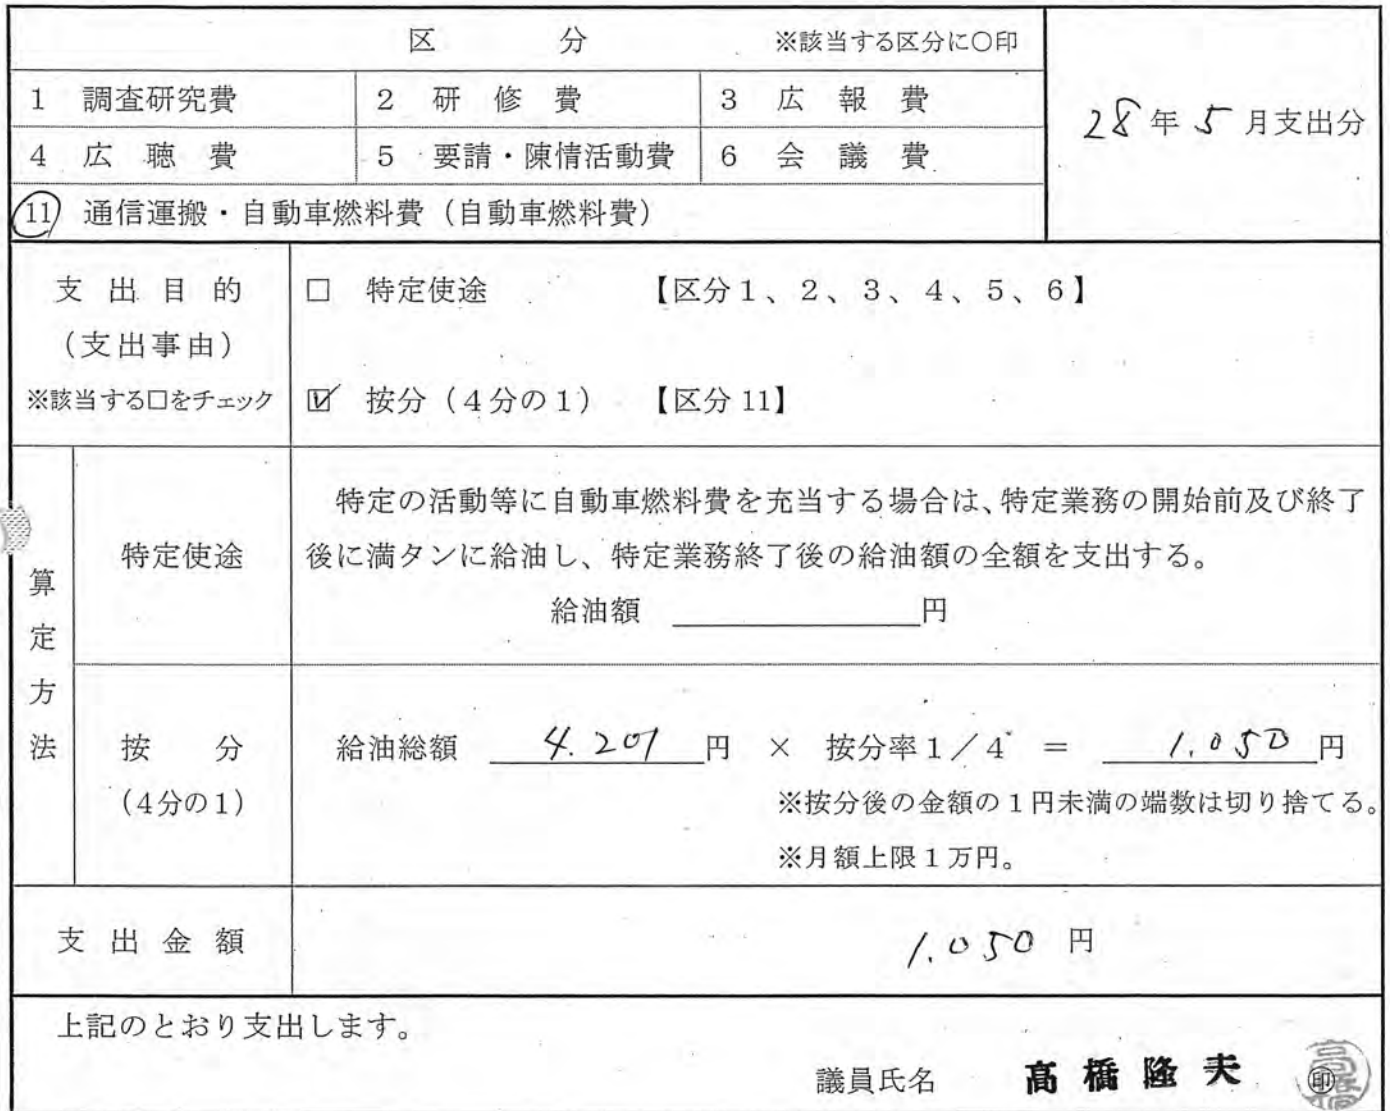 区 分 ※該当する区分に○印
28年5月支出分
1 調査研究費 2 研修費 3 広報費
4 広聴費 5 要請・陳情活動費 6 会議費
11 通信運搬・自動車燃料費（自動車燃料費）
支出目的
（支出事由）
※該当する□をチェック
□ 特定使途 【区分1、2、3、4、5、6】
☑ 按分（4分の1） 【区分11】
算定方法
特定使途
特定の活動等に自動車燃料費を充当する場合は、特定業務の開始前及び終了
後に満タンに給油し、特定業務終了後の給油額の全額を支出する。
給油額 円
按分
（4分の1）
給油総額 4.201 円 × 按分率1／4 ＝ 1.050 円
※按分後の金額の1円未満の端数は切り捨てる。
※月額上限1万円。
支出金額 1.050 円
上記のとおり支出します。
議員氏名 髙橋隆夫 ㊞